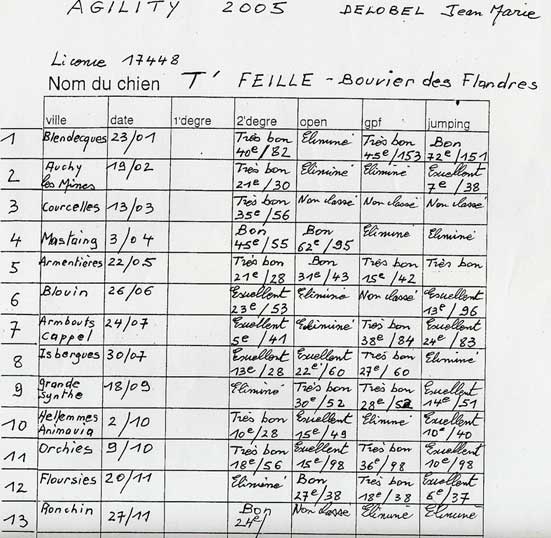 AGILITY 2005 DELOBEL Jean Marie
Licence 17448
Nom du chien T' FEILLE - Bouvier des Flandres
ville date 1'degre 2'degre open gpf jumping
1 Blendecques 23/01 Très bon 40e/82 Eliminé Très bon 45e/153 Bon 72e/151
2 Auchy les Mines 19/02 Très bon 21e/30 Eliminé Eliminé Excellent 7e/38
3 Courcelles 13/03 Très bon 35e/56 Non classé Non classé Non classé
4 Mastaing 3/04 Bon 45e/55 Bon 62e/95 Eliminé Eliminé
5 Armentières 22/05 Très bon 21e/28 Bon 31e/43 Très bon 15e/42 Très bon
6 Blouin 26/06 Excellent 23e/53 Eliminé Non classé Excellent 13e/96
7 Armbouts Cappel 24/07 Excellent 5e/41 Eliminé Très bon 38e/84 Excellent 24e/83
8 Isbergues 30/07 Excellent 13e/28 Excellent 22e/60 Très bon 27e/60 Eliminé
9 Grande Synthe 18/09 Eliminé Très bon 30e/52 Très bon 28e/52 Excellent 14e/51
10 Hellemmes Animavia 2/10 Très bon 10e/28 Excellent 15e/49 Eliminé Excellent 10e/40
11 Orchies 9/10 Très bon 18e/56 Excellent 15e/98 Très bon 36e/98 Excellent 10e/98
12 Floursies 20/11 Eliminé Bon 27e/38 Très bon 18e/38 Excellent 6e/37
13 Ronchin 27/11 Bon 24e/ Non classé Eliminé Eliminé